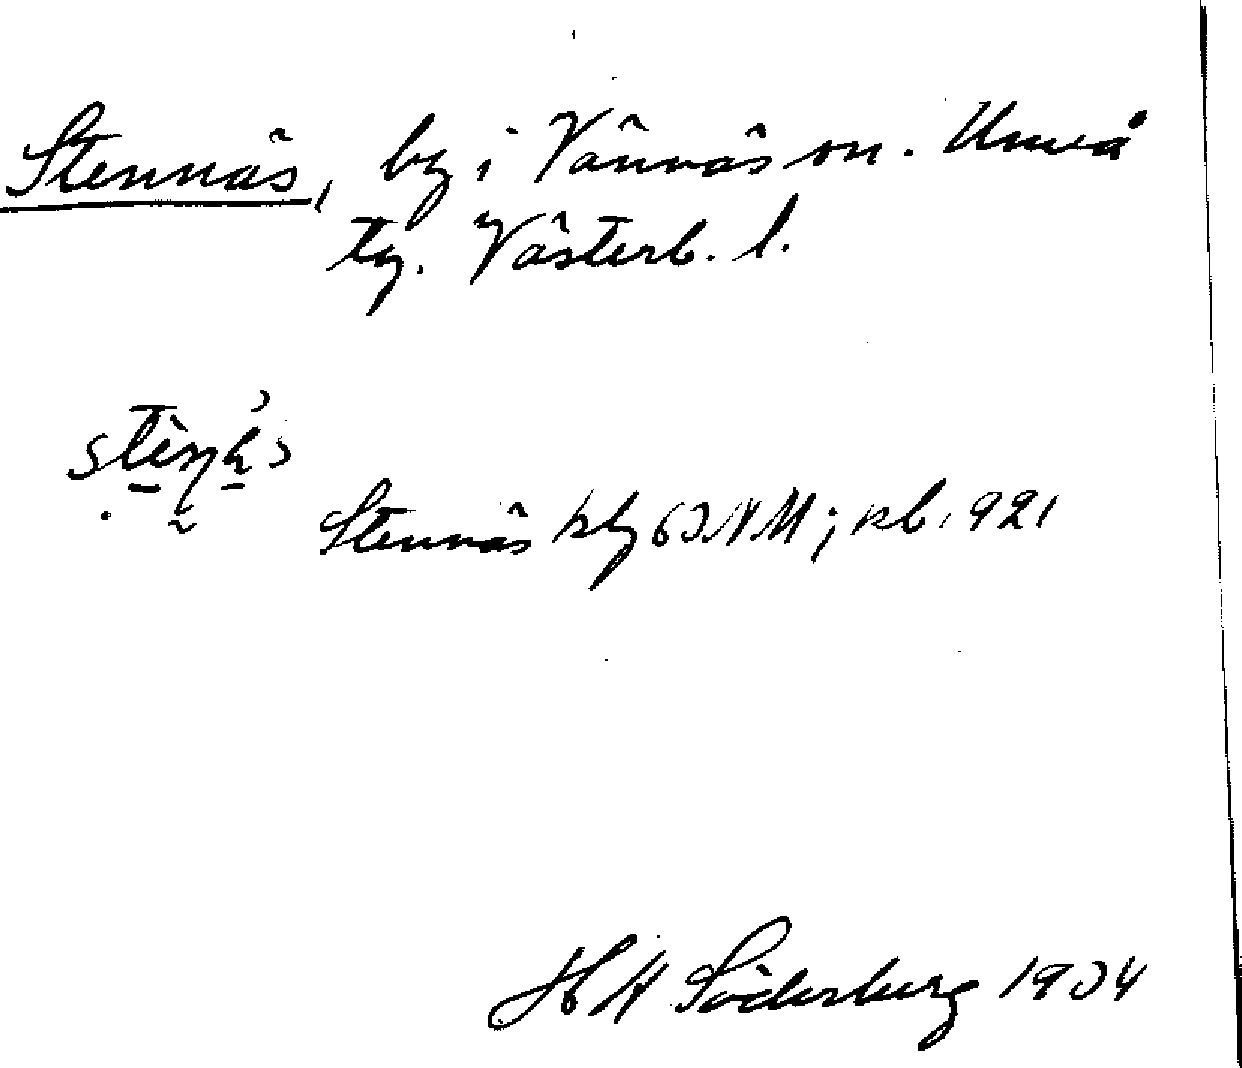 Stennäs, by i Vännäs sn. Umeå
tg. Västerb. l.
Stennäs kbg 63NM; rb. 921
H W Söderberg 1934